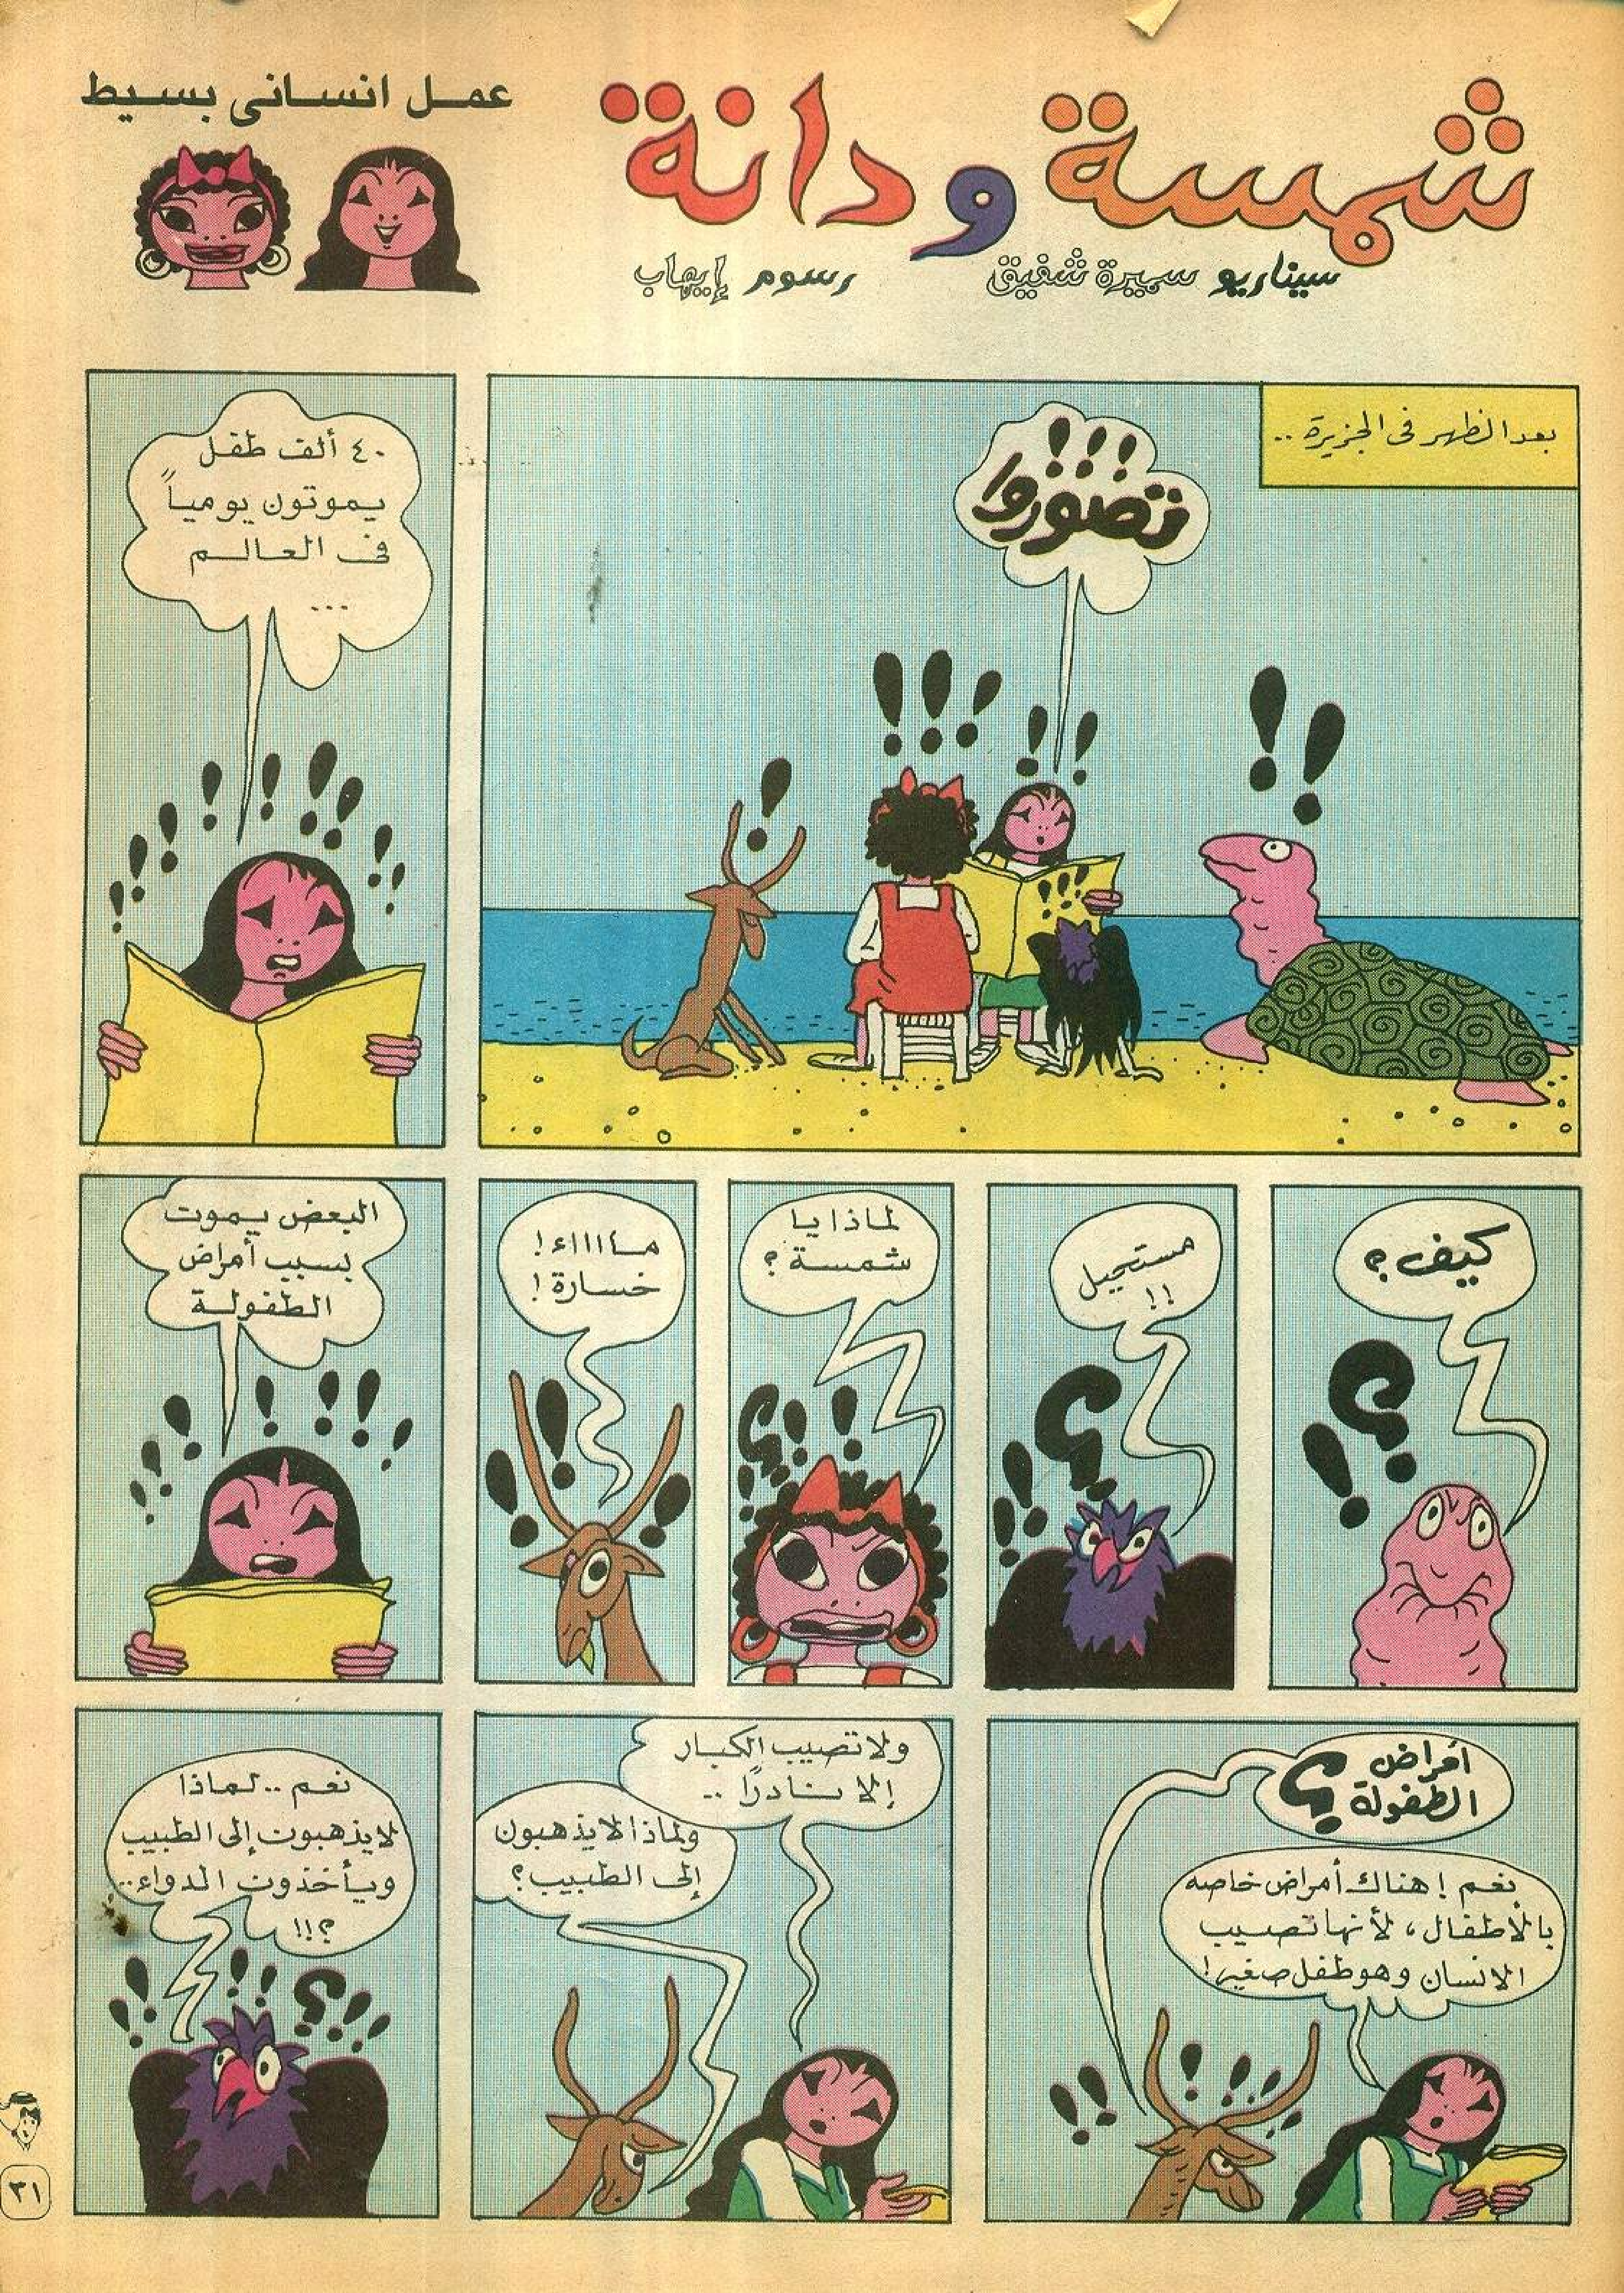 شمسة ودانة
عمل انسانى بسيط
سيناريو سميرة شفيق
رسوم إيهاب
بعد الظهر فى الجزيرة ..
!!!
تصوروا
٤٠ ألف طفل
يموتون يومياً
فى العالم
...
كيف ؟
مستحيل
!!
لماذا يا
شمسة ؟
مااااء !
خسارة !
البعض يموت
بسبب أمراض
الطفولة
أمراض
الطفولة ؟
نعم ! هناك أمراض خاصه
بالأطفال ، لأنها تصيب
الانسان وهو طفل صغير !
ولا تصيب الكبار
إلا نادرًا ..
ولماذا لا يذهبون
إلى الطبيب ؟
نعم .. لماذا
لا يذهبون إلى الطبيب
ويأخذون الدواء ..
؟!!
٣١